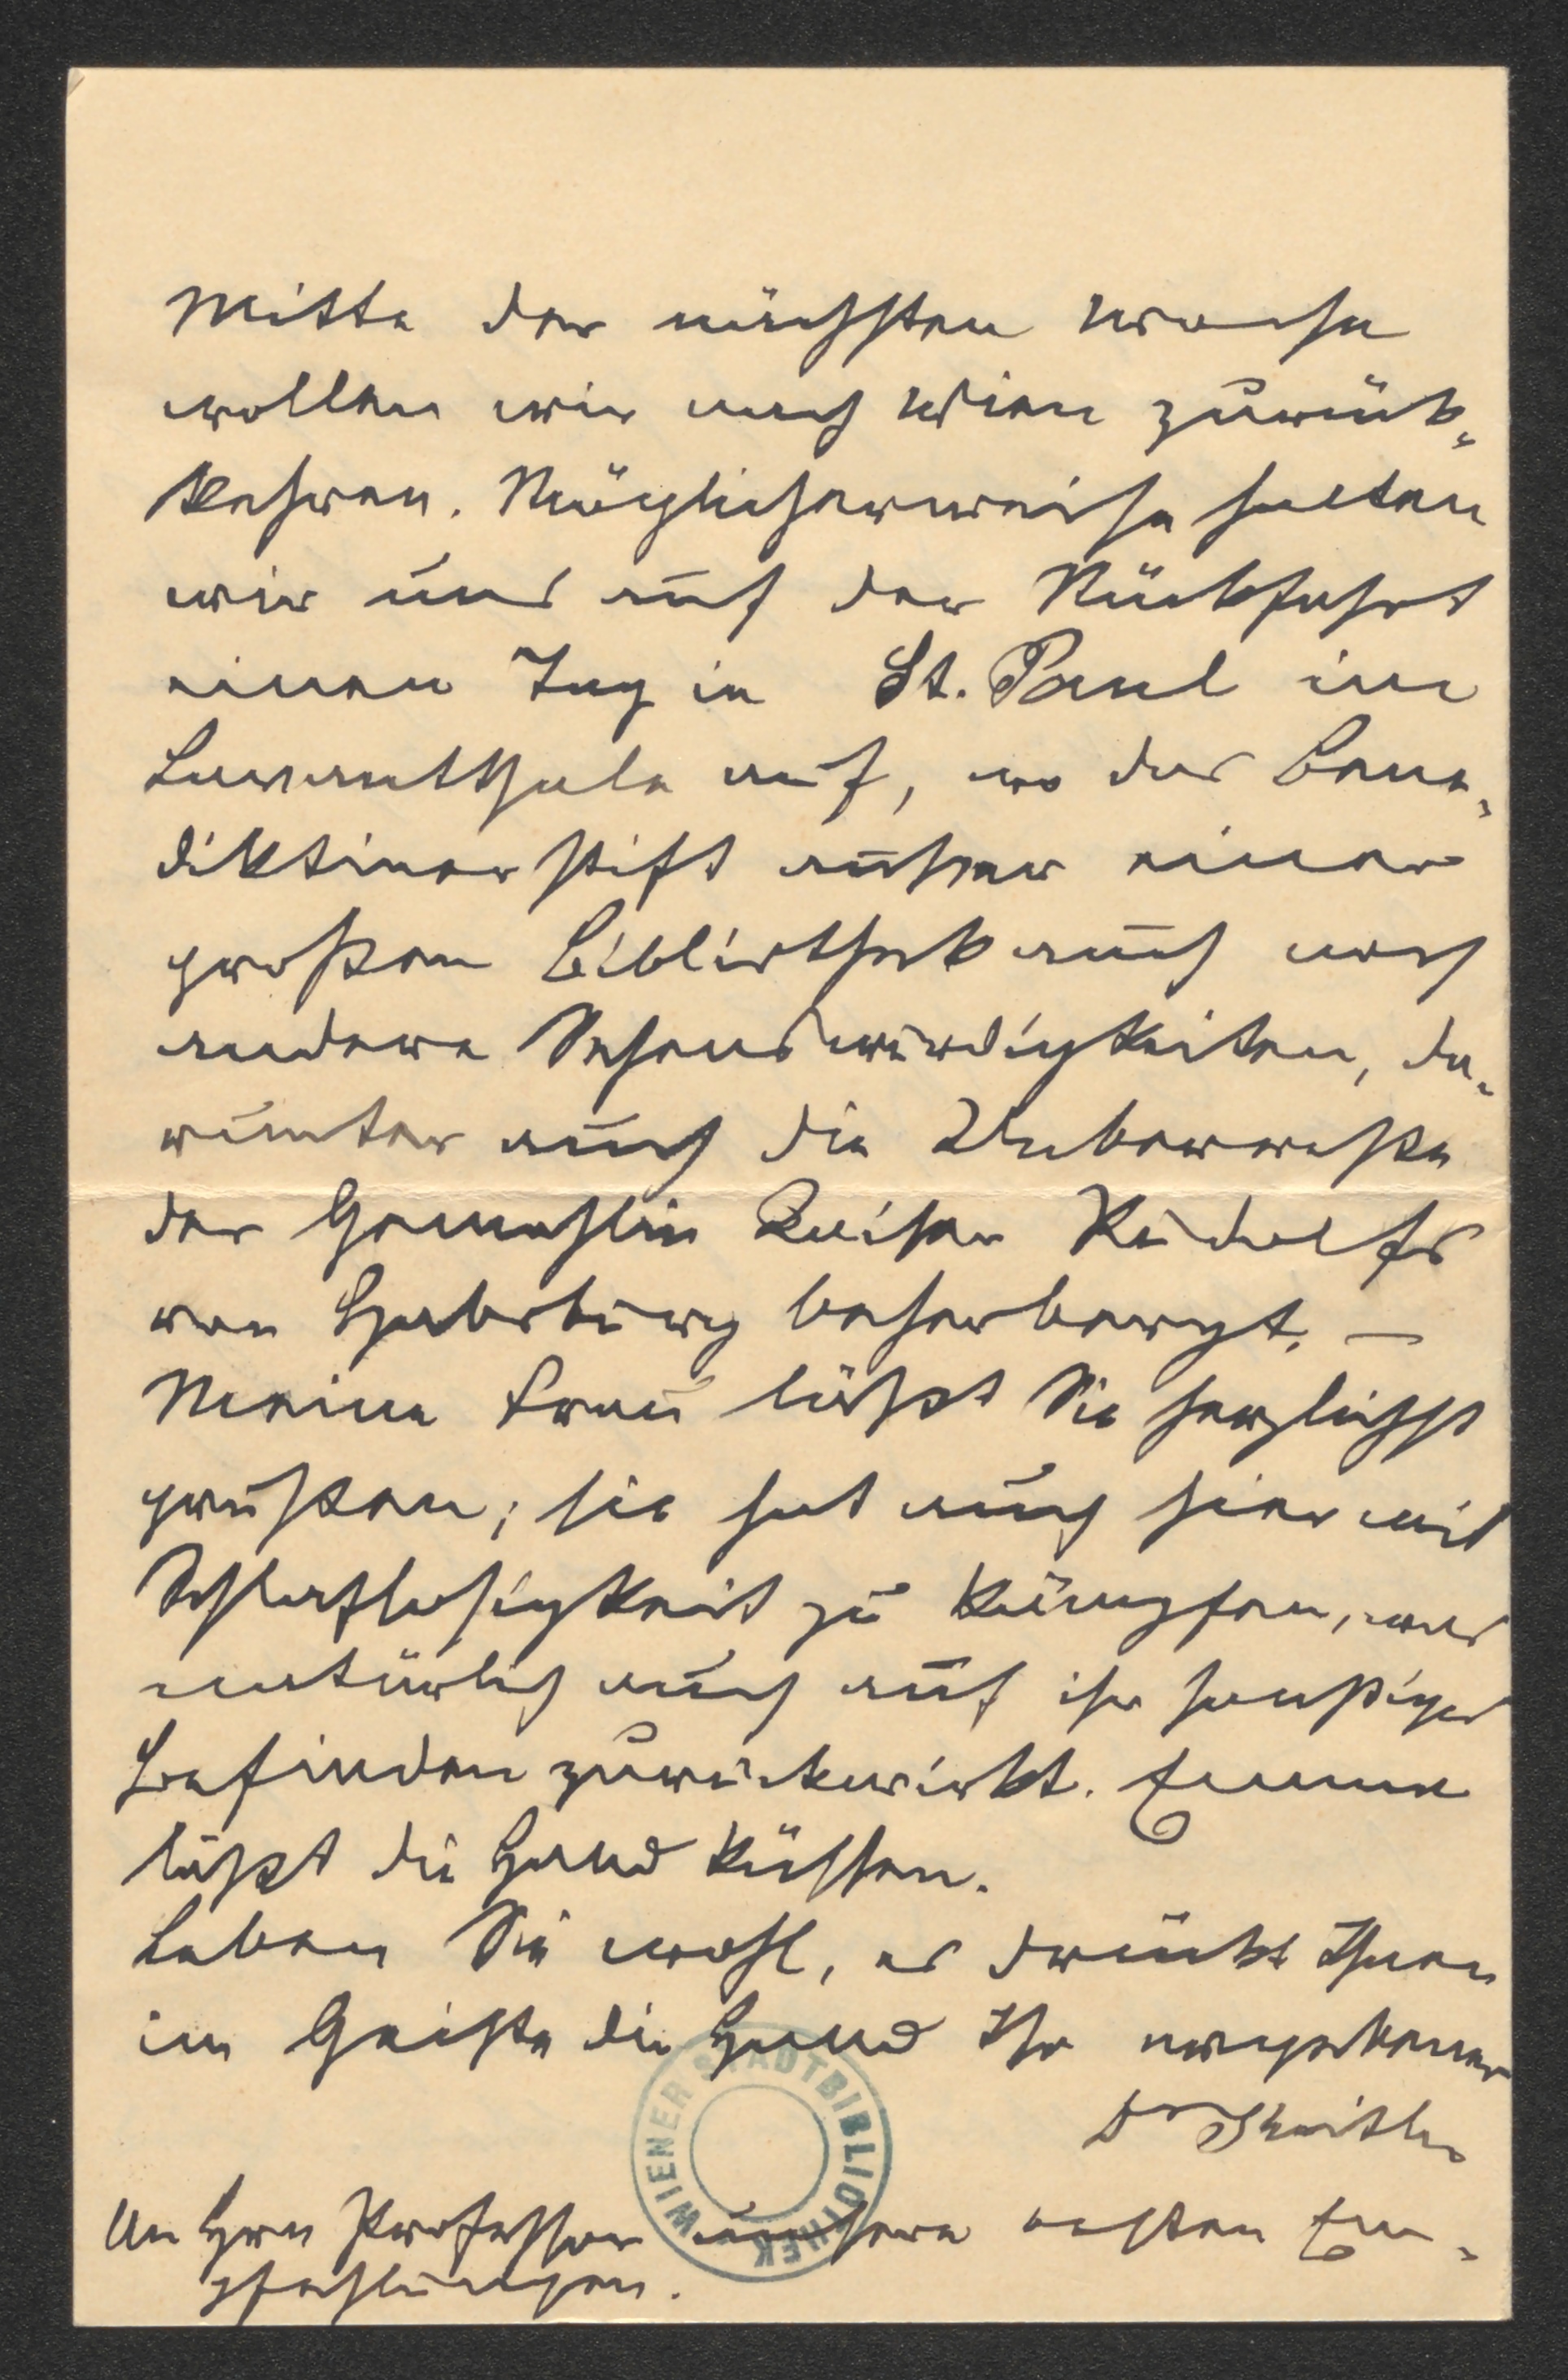 Mitte der nächsten Woche
wollen wir nach Wien zurück-
kehren. Möglicherweise halten
wir uns auf der Rückfahrt
einen Tag in St. Paul im
Lavantthale auf, wo das Bene-
diktinerstift außer einer
großen Bibliothek auch noch
andere Sehenswürdigkeiten, da-
runter auch die Überreste
der Gemahlin Kaiser Rudolfs
von Habsburg beherbergt. –
Meine Frau läßt Sie herzlichst
grüßen; sie hat auch hier mit
Schlaflosigkeit zu kämpfen, was
natürlich auch auf ihr sonstiges
Befinden zurückwirkt. Emma
läßt die Hand küssen.
Leben Sie wohl, es drückt Ihnen
im Geiste die Hand Ihr ergebener
Dr
An Hrn Professor unsere besten Em-
pfehlungen.
WIENER STADTBIBLIOTHEK